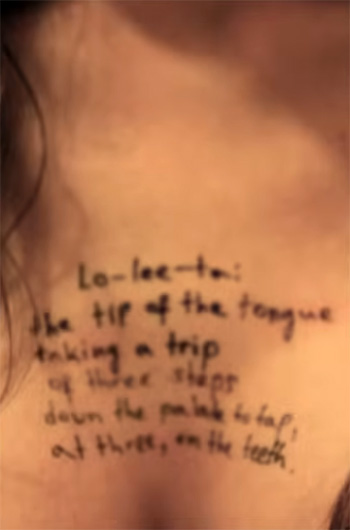 Lo-lee-ta:
the tip of the tongue
taking a trip
of three steps
down the palate to tap,
at three, on the teeth.